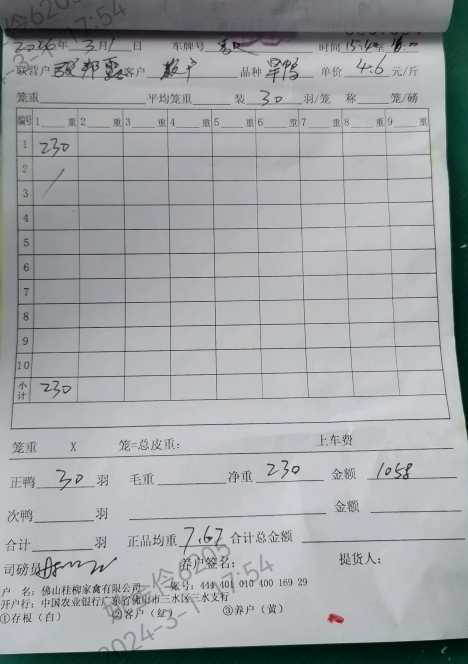 2026年 3月1日 车牌号 时间 15:40至16:00
联营户 邦 客户 散户 品种 旱鸭 单价 4.6 元/斤
笼重 平均笼重 装 30 羽/笼 称 笼/磅
编号 1 重 2 重 3 重 4 重 5 重 6 重 7 重 8 重 9 重
1 230
2
3
4
5
6
7
8
9
10
小计 230
笼重 X 笼=总皮重: 上车费
正鸭 30 羽 毛重 净重 230 金额 1058
次鸭 羽 金额
合计 羽 正品均重 7.67 合计总金额
司磅员 养户签名: 提货人:
户 名: 佛山桂柳家禽有限公司 账号: 444 401 010 400 169 29
开户行: 中国农业银行广东省佛山市三水区三水支行
①存根（白） ②客户（红） ③养户（黄）
6205
2024-3-1 17:54